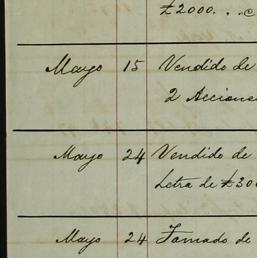 £2000.
Mayo 15 Vendido de
2 Accione
Mayo 24 Vendido de
Letra de £30
Mayo 24 Tomado de